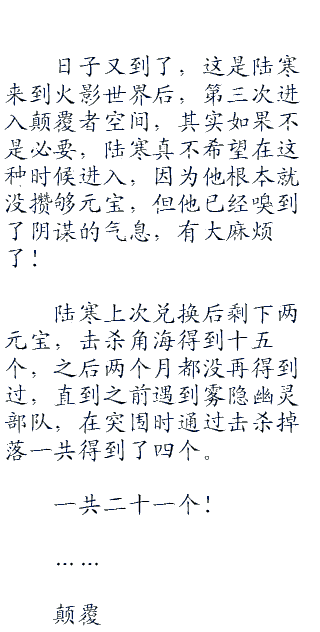 日子又到了，这是陆寒
来到火影世界后，第三次进
入颠覆者空间，其实如果不
是必要，陆寒真不希望在这
种时候进入，因为他根本就
没攒够元宝，但他已经嗅到
了阴谋的气息，有大麻烦
了！
陆寒上次兑换后剩下两
元宝，击杀角海得到十五
个，之后两个月都没再得到
过，直到之前遇到雾隐幽灵
部队，在突围时通过击杀掉
落一共得到了四个。
一共二十一个！
……
颠覆